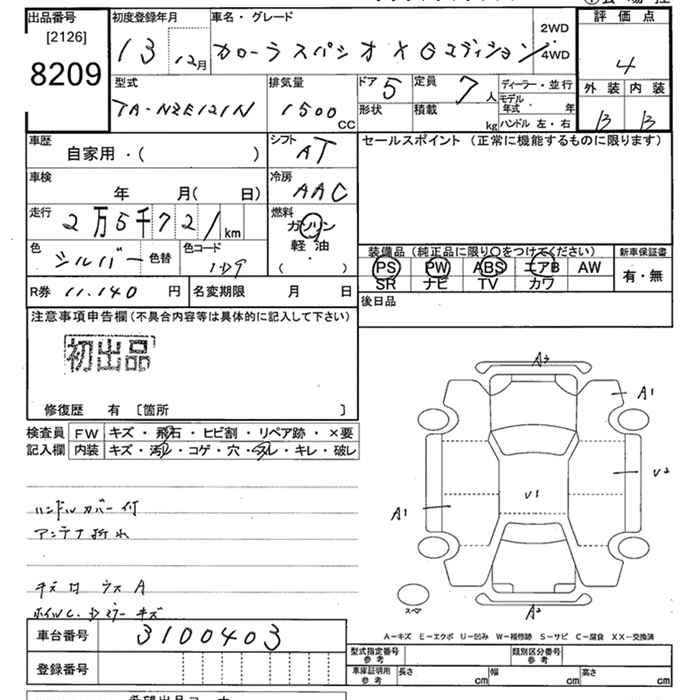 出品番号 初度登録年月 車名・グレード 2WD 評価点
[2126] 13 12月 カローラスパシオ X Gエディション 4WD 4
8209
型式 排気量 ドア 5 定員 7人 ディーラー・並行 外装 内装
TA-NZE121N 1500CC 形状 積載 kg モデル年式 ・ 年 B B
ハンドル 左・右
車歴 シフト セールスポイント (正常に機能するものに限ります)
自家用・( ) AT
車検 冷房
年 月( 日) AAC
走行 燃料
2万5千721km ガソリン
軽油
・
( )
色 シルバー 色替 色コード 1D9
装備品(純正品に限り○をつけてください) 新車保証書
PS PW ABS エアB AW 有・無
SR ナビ TV カワ
R券 11,140円 名変期限 月 日 後日品
注意事項申告欄(不具合内容等は具体的に記入して下さい)
初出品
修復歴 有 [箇所 ]
検査員 FW キズ・飛石・ヒビ割・リペア跡・×要
記入欄 内装 キズ・汚れ・コゲ・穴・スレ・キレ・破レ
A3
A1
U2
U1
A1
ハンドルカバー付
アンテナ折れ
スペア
A2
A−キズ E−エクボ U−凹み W−補修跡 S−サビ C−腐食 XX−交換済
車台番号 3100403
登録番号
型式指定番号 参考 類別区分番号 参考
車庫証明用 参考 長さ cm 幅 cm 高さ cm